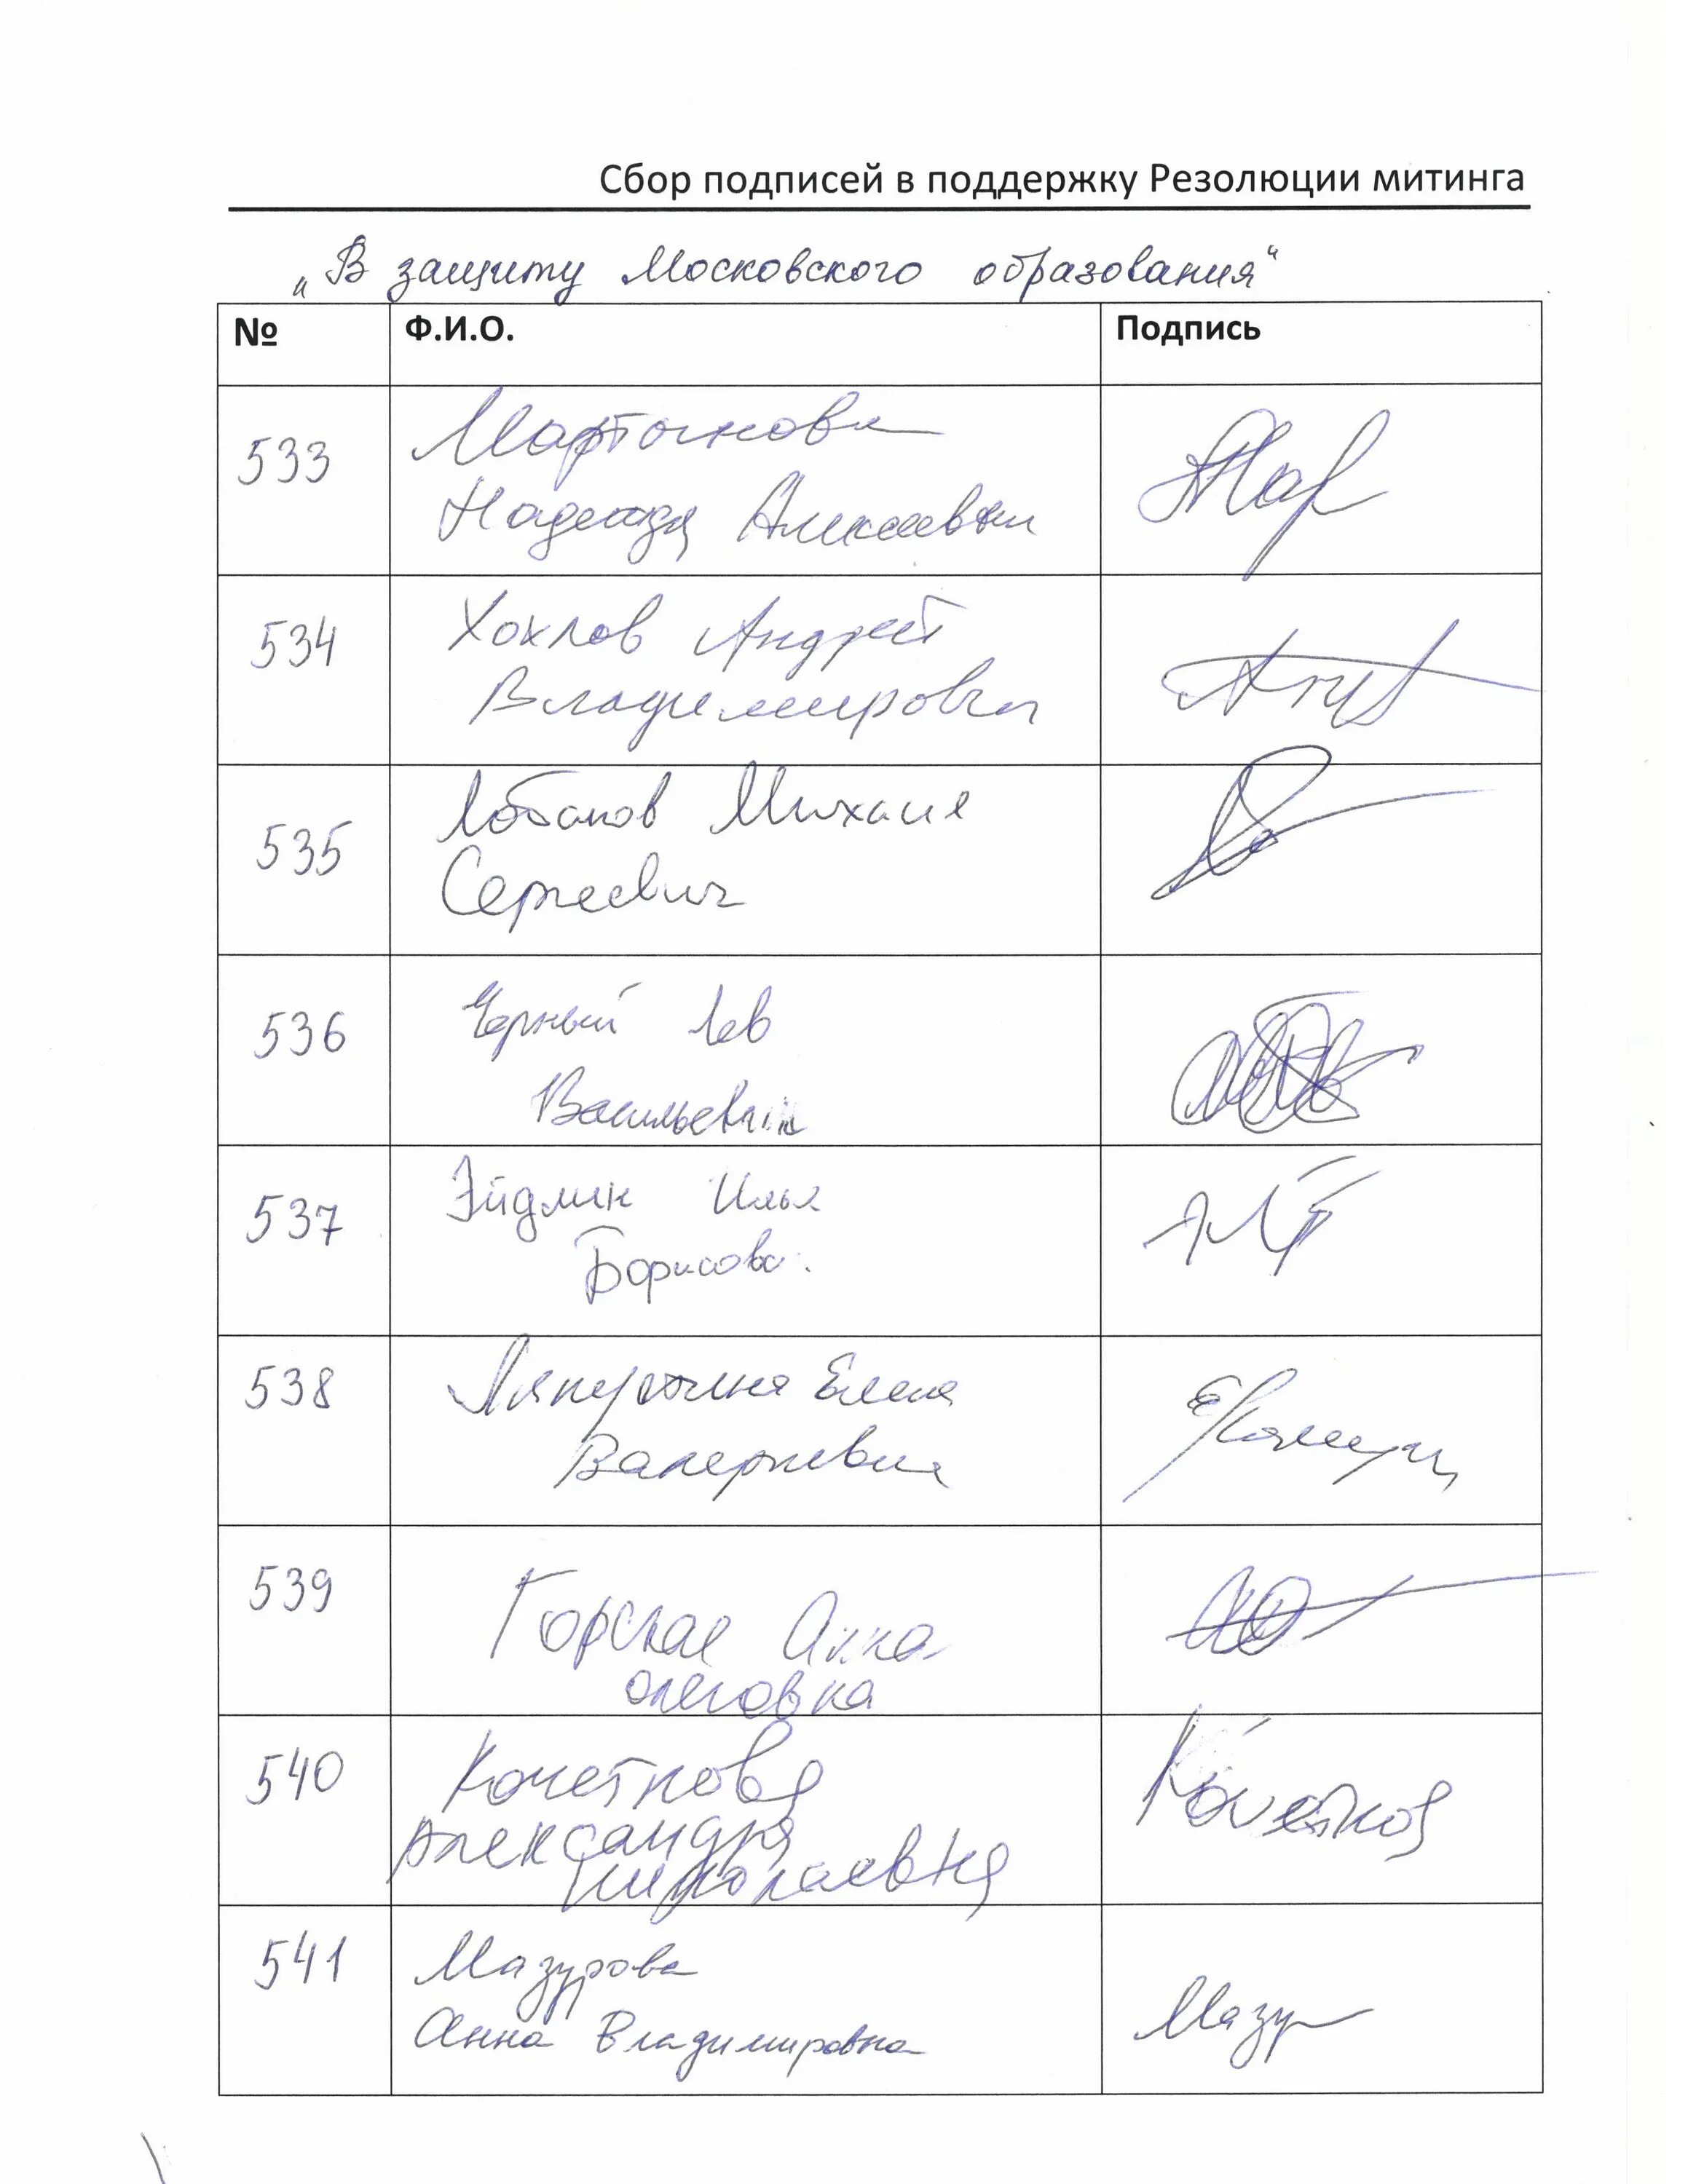 Сбор подписей в поддержку Резолюции митинга
„В защиту Московского образования“
№ Ф.И.О. Подпись
533 Мартынова
Надежда Алексеевна
534 Хохлов Андрей
Владимирович
535 Лобанов Михаил
Сергеевич
536 Черный Лев
Васильевич
537 Эйдлин Илья
Борисович
538 Елена
Валерьевна
539 Горская
Олеговна
540 Кочеткова
Александра
Николаевна
541 Мазурова
Анна Владимировна